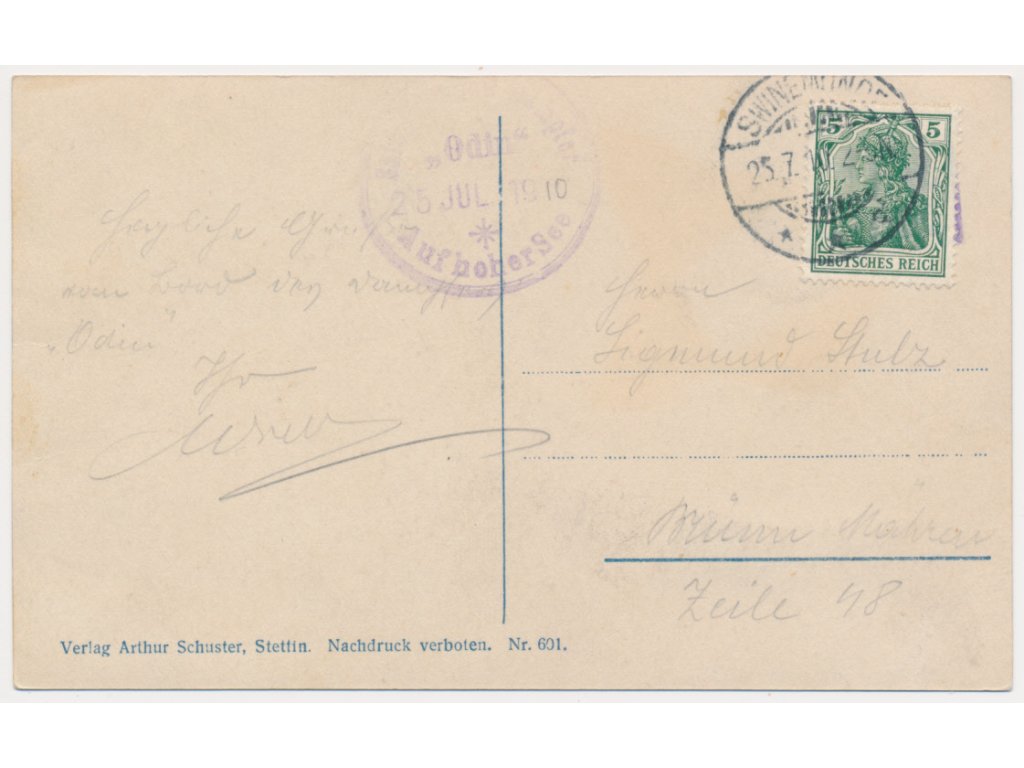 „Odin“
25 JUL. 1910
Auf hoher See
SWINEMÜNDE
25.7.10. 2
5 5
DEUTSCHES REICH
Herzliche Grüße
vom Bord des Dampfers
„Odin“
Ihr
Herrn
Sigmund Stulz
Brünn Mähren
Zeile 48.
Verlag Arthur Schuster, Stettin. Nachdruck verboten. Nr. 601.